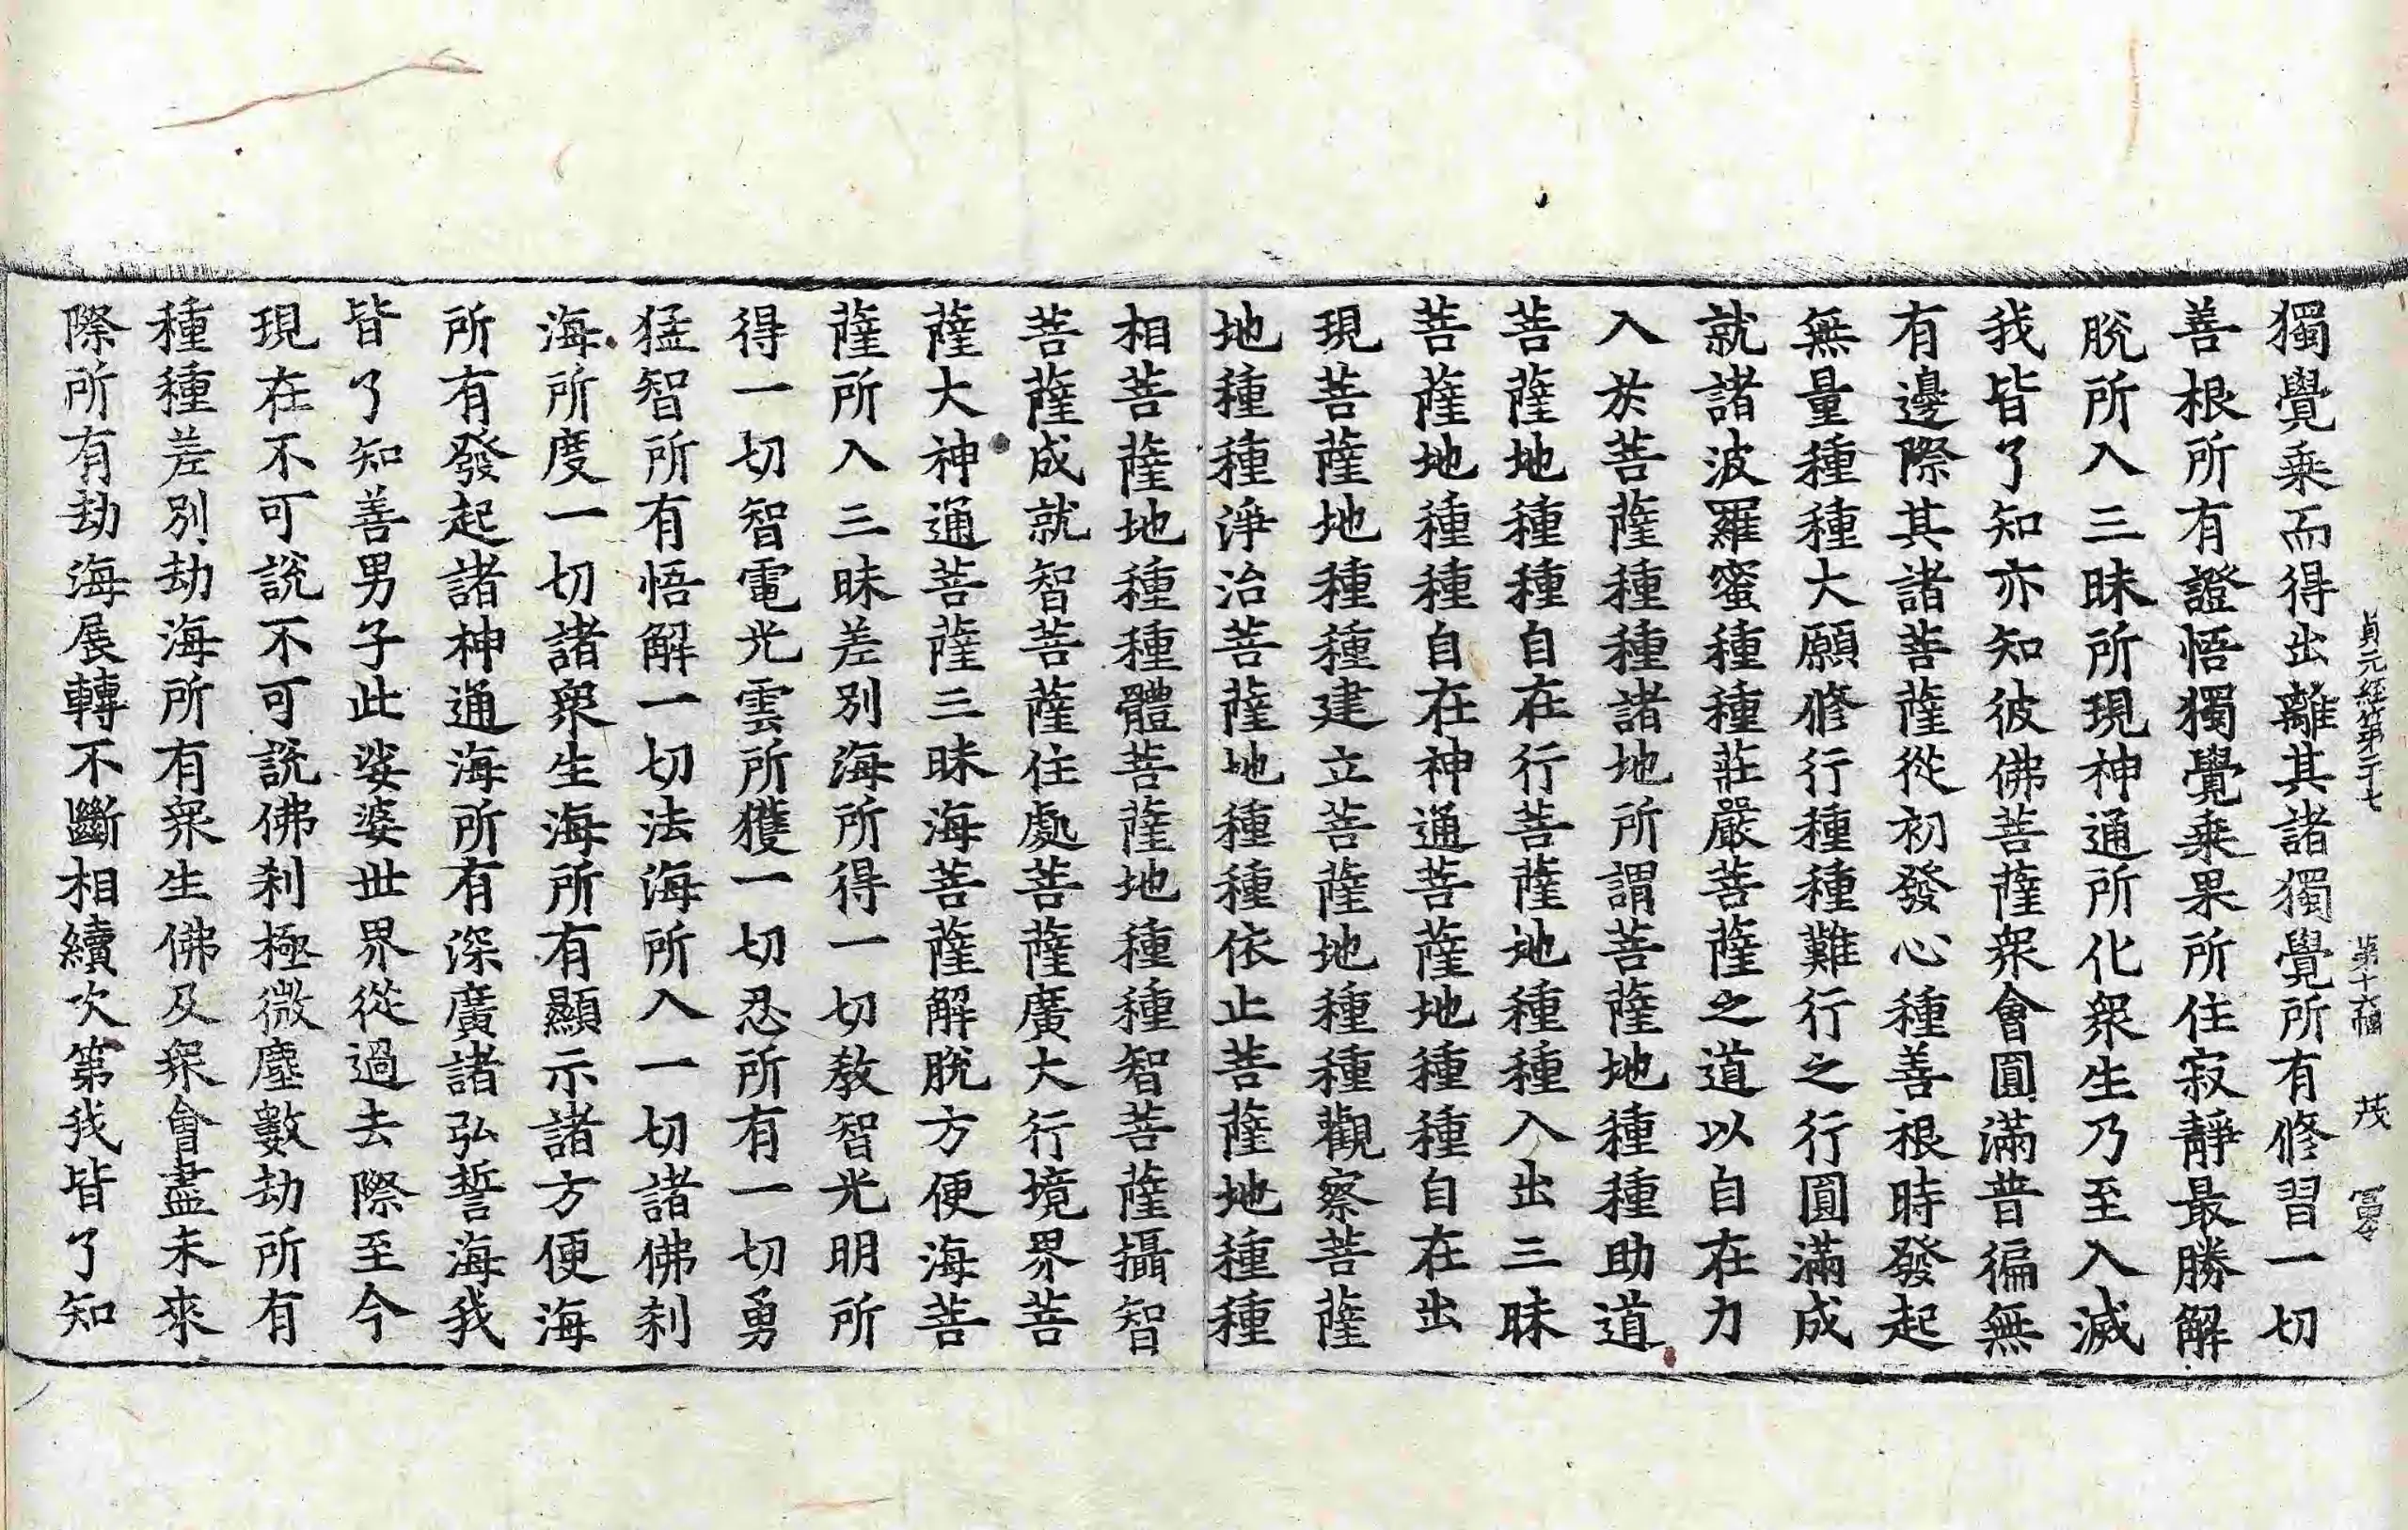 貞元経第二十七 第十六幅 茂 冨
獨覺乗而得出離其諸獨覺所有修習一切
善根所有證悟獨覺乗果所住寂靜最勝解
脫所入三昧所現神通所化衆生乃至入滅
我皆了知亦知彼佛菩薩衆會圓滿普徧無
有邊際其諸菩薩從初發心種善根時發起
無量種種大願修行種種難行之行圓滿成
就諸波羅蜜種種莊嚴菩薩之道以自在力
入扵菩薩種種諸地所謂菩薩地種種助道
菩薩地種種自在行菩薩地種種入出三昧
菩薩地種種自在神通菩薩地種種自在出
現菩薩地種種建立菩薩地種種觀察菩薩
地種種淨治菩薩地種種依止菩薩地種種
相菩薩地種種體菩薩地種種智菩薩攝智
菩薩成就智菩薩住處菩薩廣大行境界菩
薩大神通菩薩三昧海菩薩解脫方便海菩
薩所入三昧差别海所得一切教智光明所
得一切智電光雲所獲一切忍所有一切勇
猛智所有悟解一切法海所入一切諸佛刹
海所度一切諸衆生海所有顯示諸方便海
所有發起諸神通海所有深廣諸弘誓海我
皆了知善男子此娑婆世界從過去際至今
現在不可說不可說佛刹極微塵數劫所有
種種差别劫海所有衆生佛及衆會盡未來
際所有劫海展轉不斷相續次第我皆了知